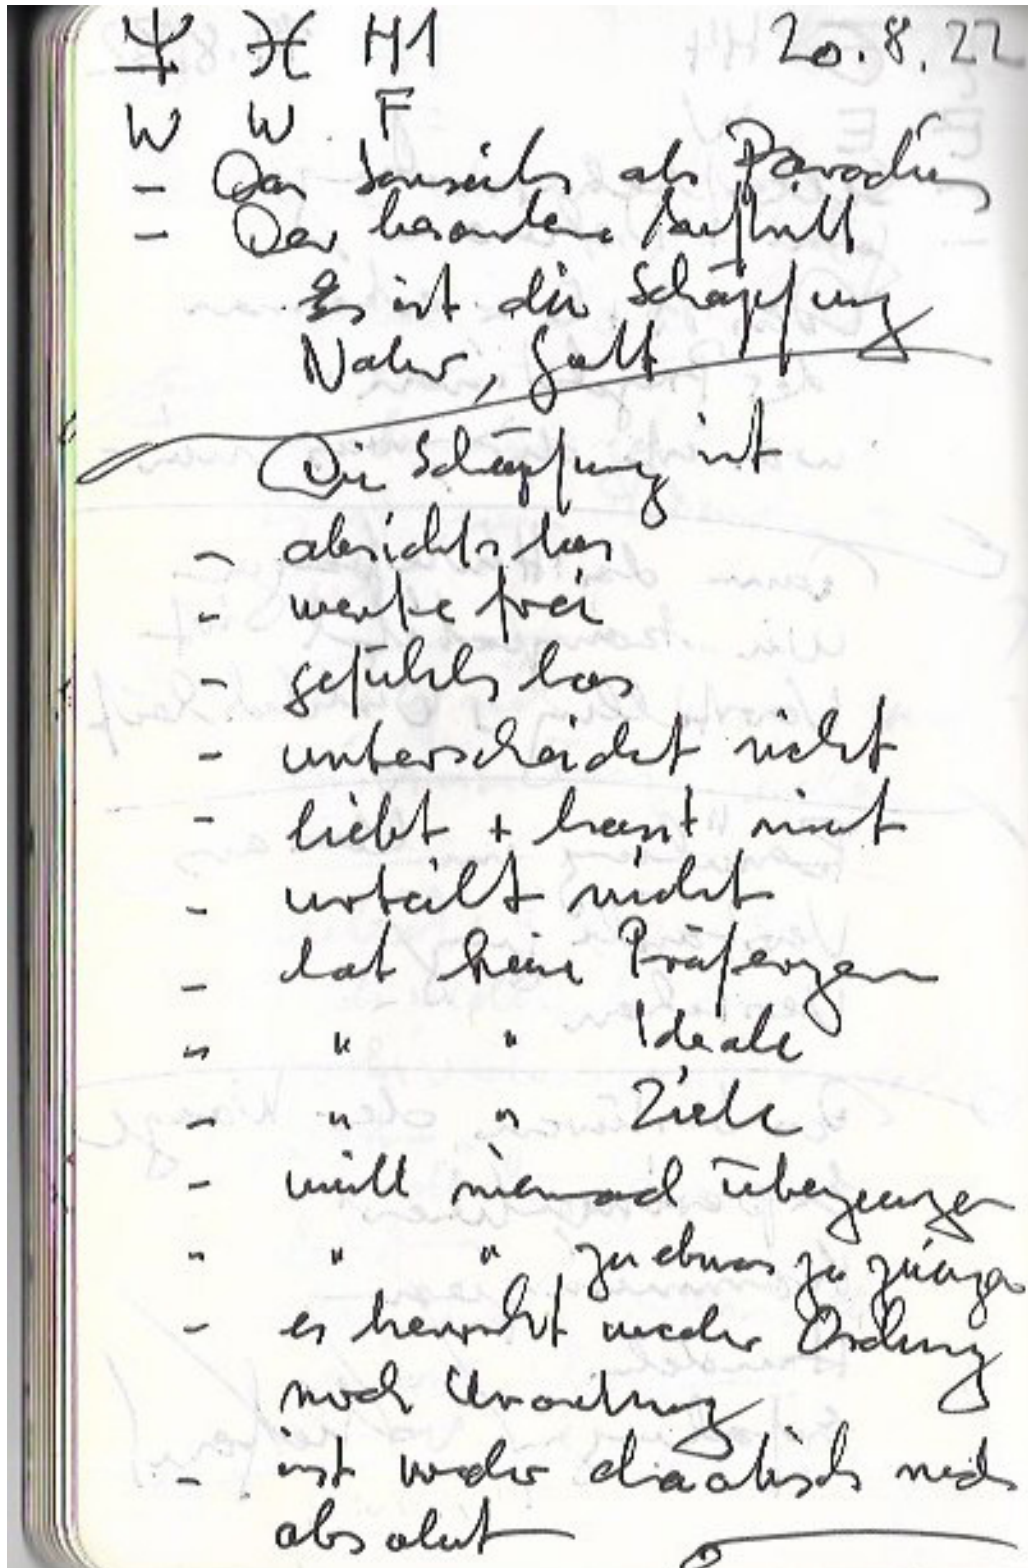 ♆ ♓ H1 20.8.22
W W F
- Das Jenseits als Paradies
- Der besondere Auftritt
Es ist die Schöpfung
Natur, Gott
Die Schöpfung ist
- absichtslos
- wertefrei
- gefühlslos
- unterscheidet nicht
- liebt + hasst nicht
- urteilt nicht
- hat keine Präferenzen
- " " Ideale
- " " Ziele
- will niemand überzeugen
- " " zu etwas zu zwingen
- es herrscht weder Ordnung
noch Unordnung
- ist weder chaotisch noch
absolut